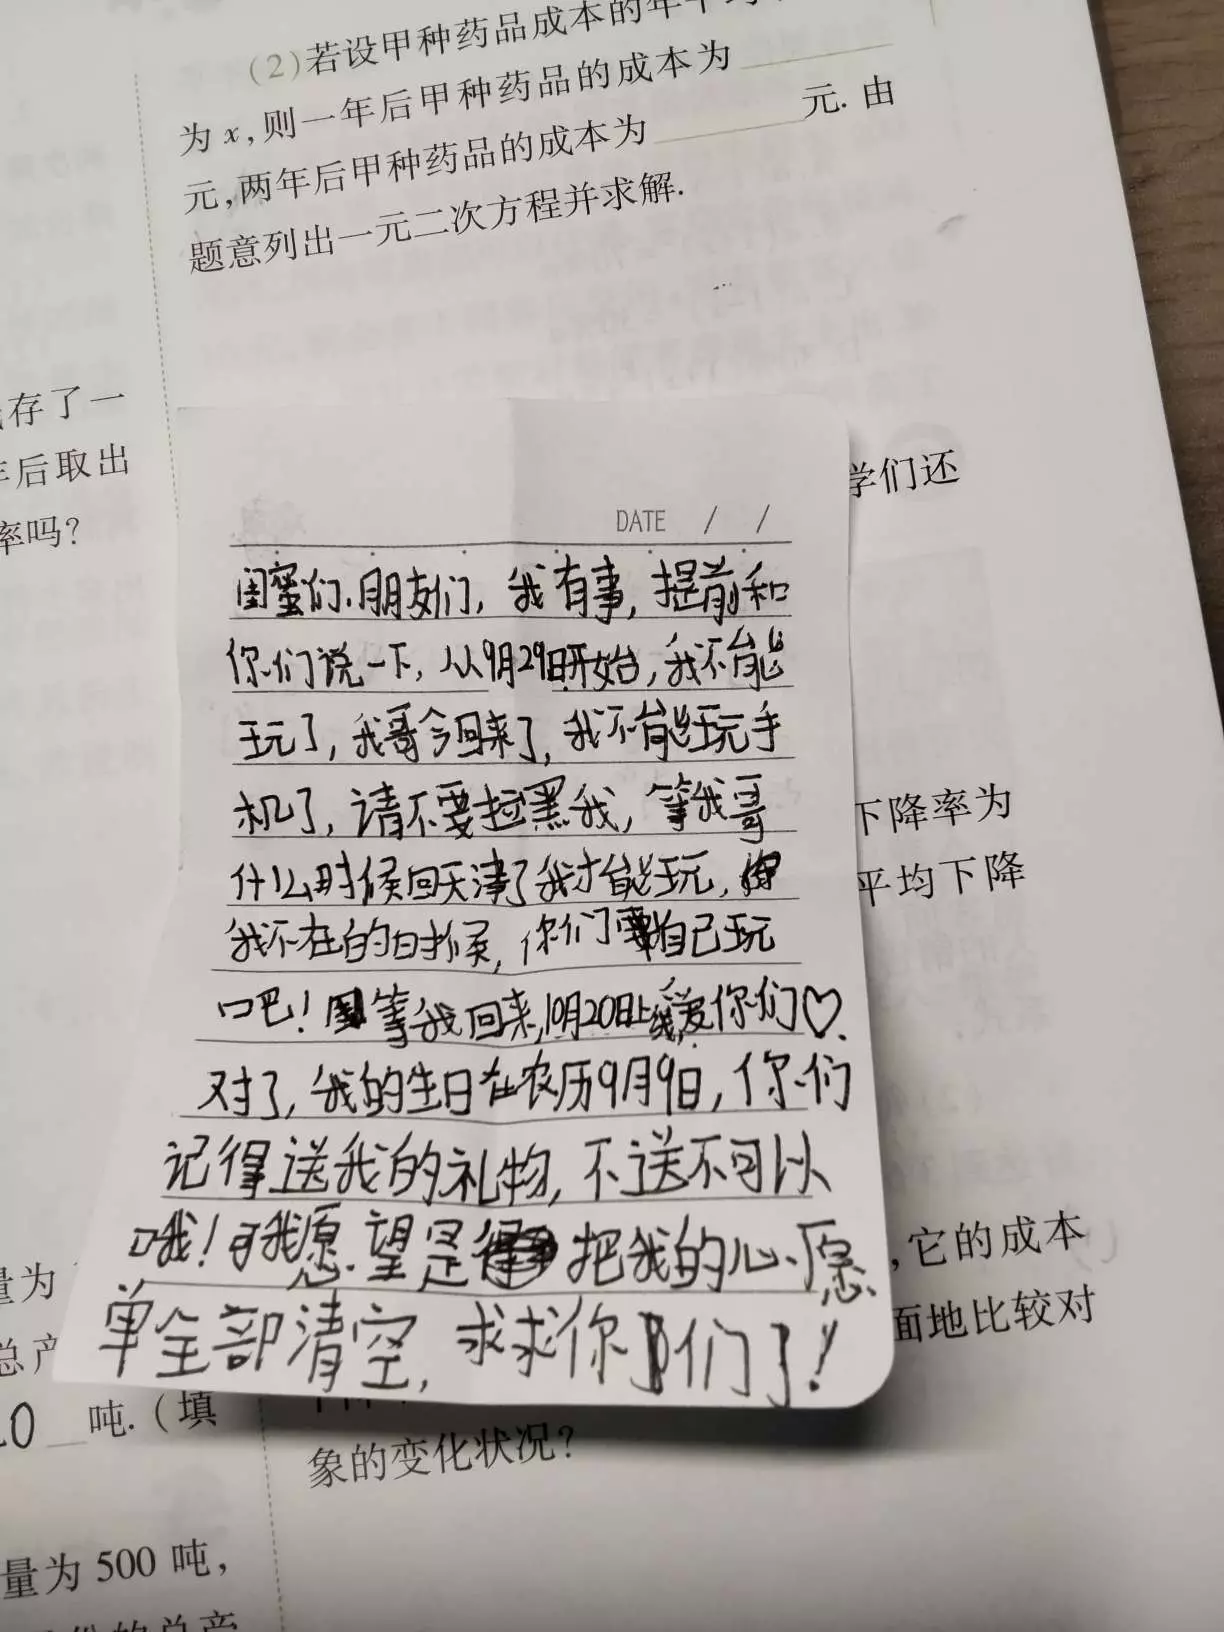 (2)若设甲种药品成本的年平均
为 x,则一年后甲种药品的成本为
元,两年后甲种药品的成本为 元. 由
题意列出一元二次方程并求解.
存了一
年后取出
率吗?
学们还
DATE / /
闺蜜们、朋友们,我有事,提前和
你们说一下,从9月29日开始,我不能
玩了,我哥今回来了,我不能玩手
机了,请不要拉黑我,等我哥
什么时候回天津了我才能玩,
我不在的时候,你们自己玩
吧!等我回来,10月20日上线,爱你们♡.
对了,我的生日在农历9月9日,你们
记得送我的礼物,不送不可以
哦!我愿望是把我的心愿
单全部清空,求求你们了!
下降率为
平均下降
,它的成本
面地比较对
象的变化状况?
量为
总产
20 吨.(填
量为 500 吨,
的总产